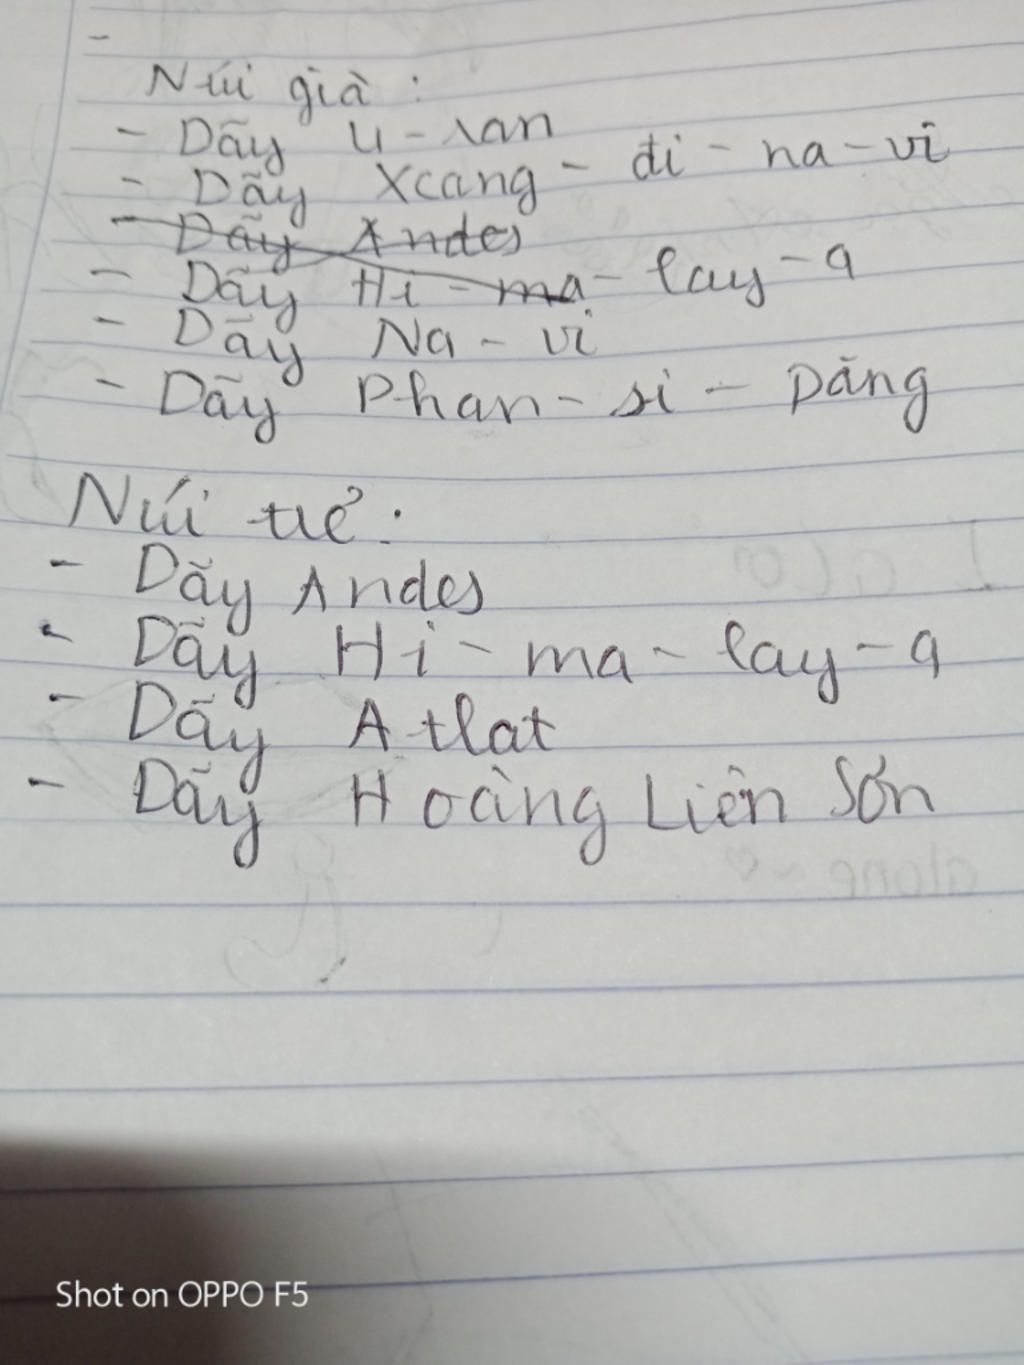 -
Núi già :
- Dãy U - ran
- Dãy Xcang - đi - na - vi
- Dãy Andes
- Dãy Hi - ma - lay - a
- Dãy Na - vi
- Dãy Phan - si - Păng
Núi trẻ :
- Dãy Andes
- Dãy Hi - ma - lay - a
- Dãy Atlat
- Dãy Hoàng Liên Sơn
Shot on OPPO F5